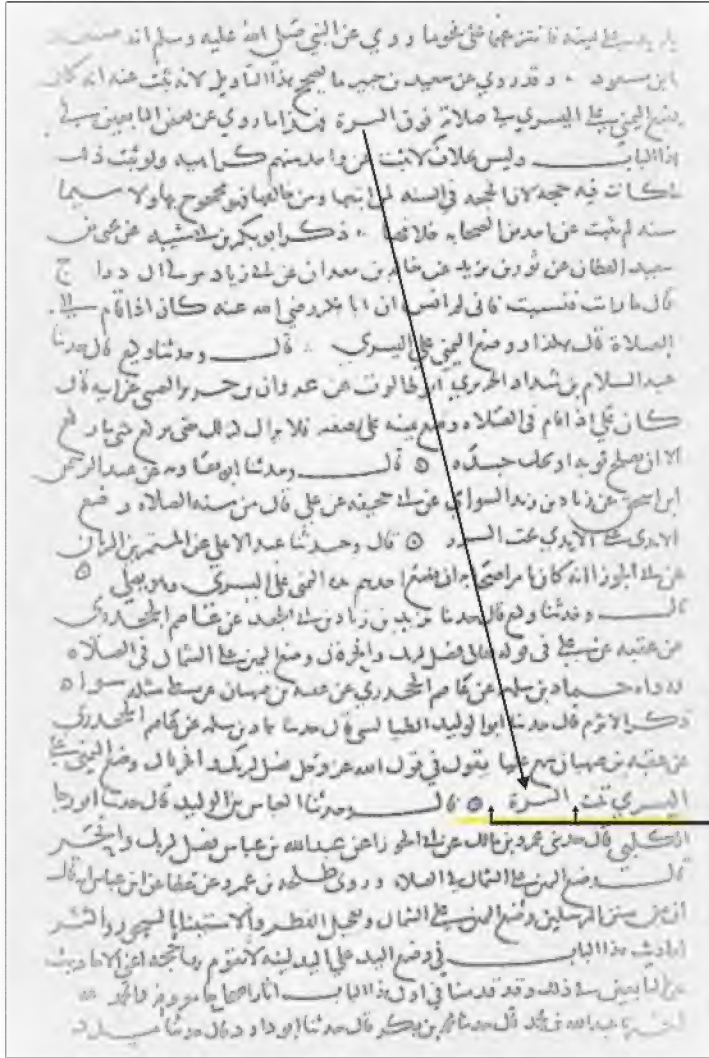 ابن مسعود ٠ وقد روي عن سعيد بن جبير ما يصحح هذا التاويل لانه ثبت عنه انه كان
يضع اليمني علي اليسري في صلاته فوق السرة فهذا ما روي عن بعض التابعين في
هذا الباب وليس بخلاف لانه لا يثبت عن واحد منهم كراهيه ولو ثبت ذلك
ما كانت فيه حجه لان الحجه في السنه لمن اتبعها ومن خالفها فهو محجوج بها ولا سيما
سنه لم يثبت عن احد من الصحابه خلافها ٠ ذكر ابو بكر بن ابي شيبه عن يحيي بن
سعيد القطان عن ثور بن يزيد عن خالد بن معدان عن ابي زياد مولي ال دراج
قال ما رايت فنسيت فاني لم انس ان ابا بكر رضي الله عنه كان اذا قام في
الصلاة قال هكذا ووضع اليمني علي اليسري ٠ قال وحدثنا وكيع قال حدثنا
عبد السلام بن شداد الجريري ابو طالوت عن غزوان بن جرير الضبي عن ابيه قال
كان علي اذا قام في الصلاه وضع يمينه علي رصغه فلا يزال كذلك حتي يركع متي ما ركع
الا ان يصلح ثوبه او يحك جسده ٥ قال وحدثنا ابو معاويه عن عبد الرحمن
ابن اسحق عن زياد بن زيد السوائي عن ابي جحيفه عن علي قال من سنه الصلاه وضع
الايدي علي الايدي تحت السرر ٥ قال وحدثنا عبد الاعلي عن المستمر بن الريان
عن ابي الجوزا انه كان يامر اصحابه ان يضع احدهم يده اليمني علي اليسري وهو يصلي ٥
قال وحدثنا وكيع قال حدثنا يزيد بن زياد بن ابي الجعد عن عاصم الجحدري
عن عقبه عن علي في قوله فصل لربك وانحر قال وضع اليمين علي الشمال في الصلاه
رواه حماد بن سلمه عن عاصم الجحدري عن عقبه بن صهبان عن علي مثله سوا ٥
ذكر الاثرم قال حدثنا ابو الوليد الطيالسي قال حدثنا حماد بن سلمه عن عاصم الجحدري
عن عقبه بن صهبان سمع عليا يقول في قول الله عز وجل فصل لربك وانحر قال وضع اليمني علي
اليسري تحت السرة ٥ قال وحدثنا العباس بن الوليد قال حدثنا ابو رجا
الكلبي قال حدثني عمرو بن مالك عن ابي الجوزا عن عبد الله بن عباس فصل لربك وانحر
قال وضع اليمين علي الشمال في الصلاه وروي طلحه بن عمرو عن عطا عن ابن عباس انه قال
ان من سنن المرسلين وضع اليمين علي الشمال وتعجيل الفطر والاستيناء بالسحور
احاديث هذا الباب في وضع اليد علي اليد لينه لا تقوم بها حجه اعني الاحاديث
عن التابعين في ذلك وقد قدمنا في اول هذا الباب اثارا صحاحا مرفوعه
عبد الله بن محمد قال حدثنا محمد بن بكر قال حدثنا ابو داود قال حدثنا